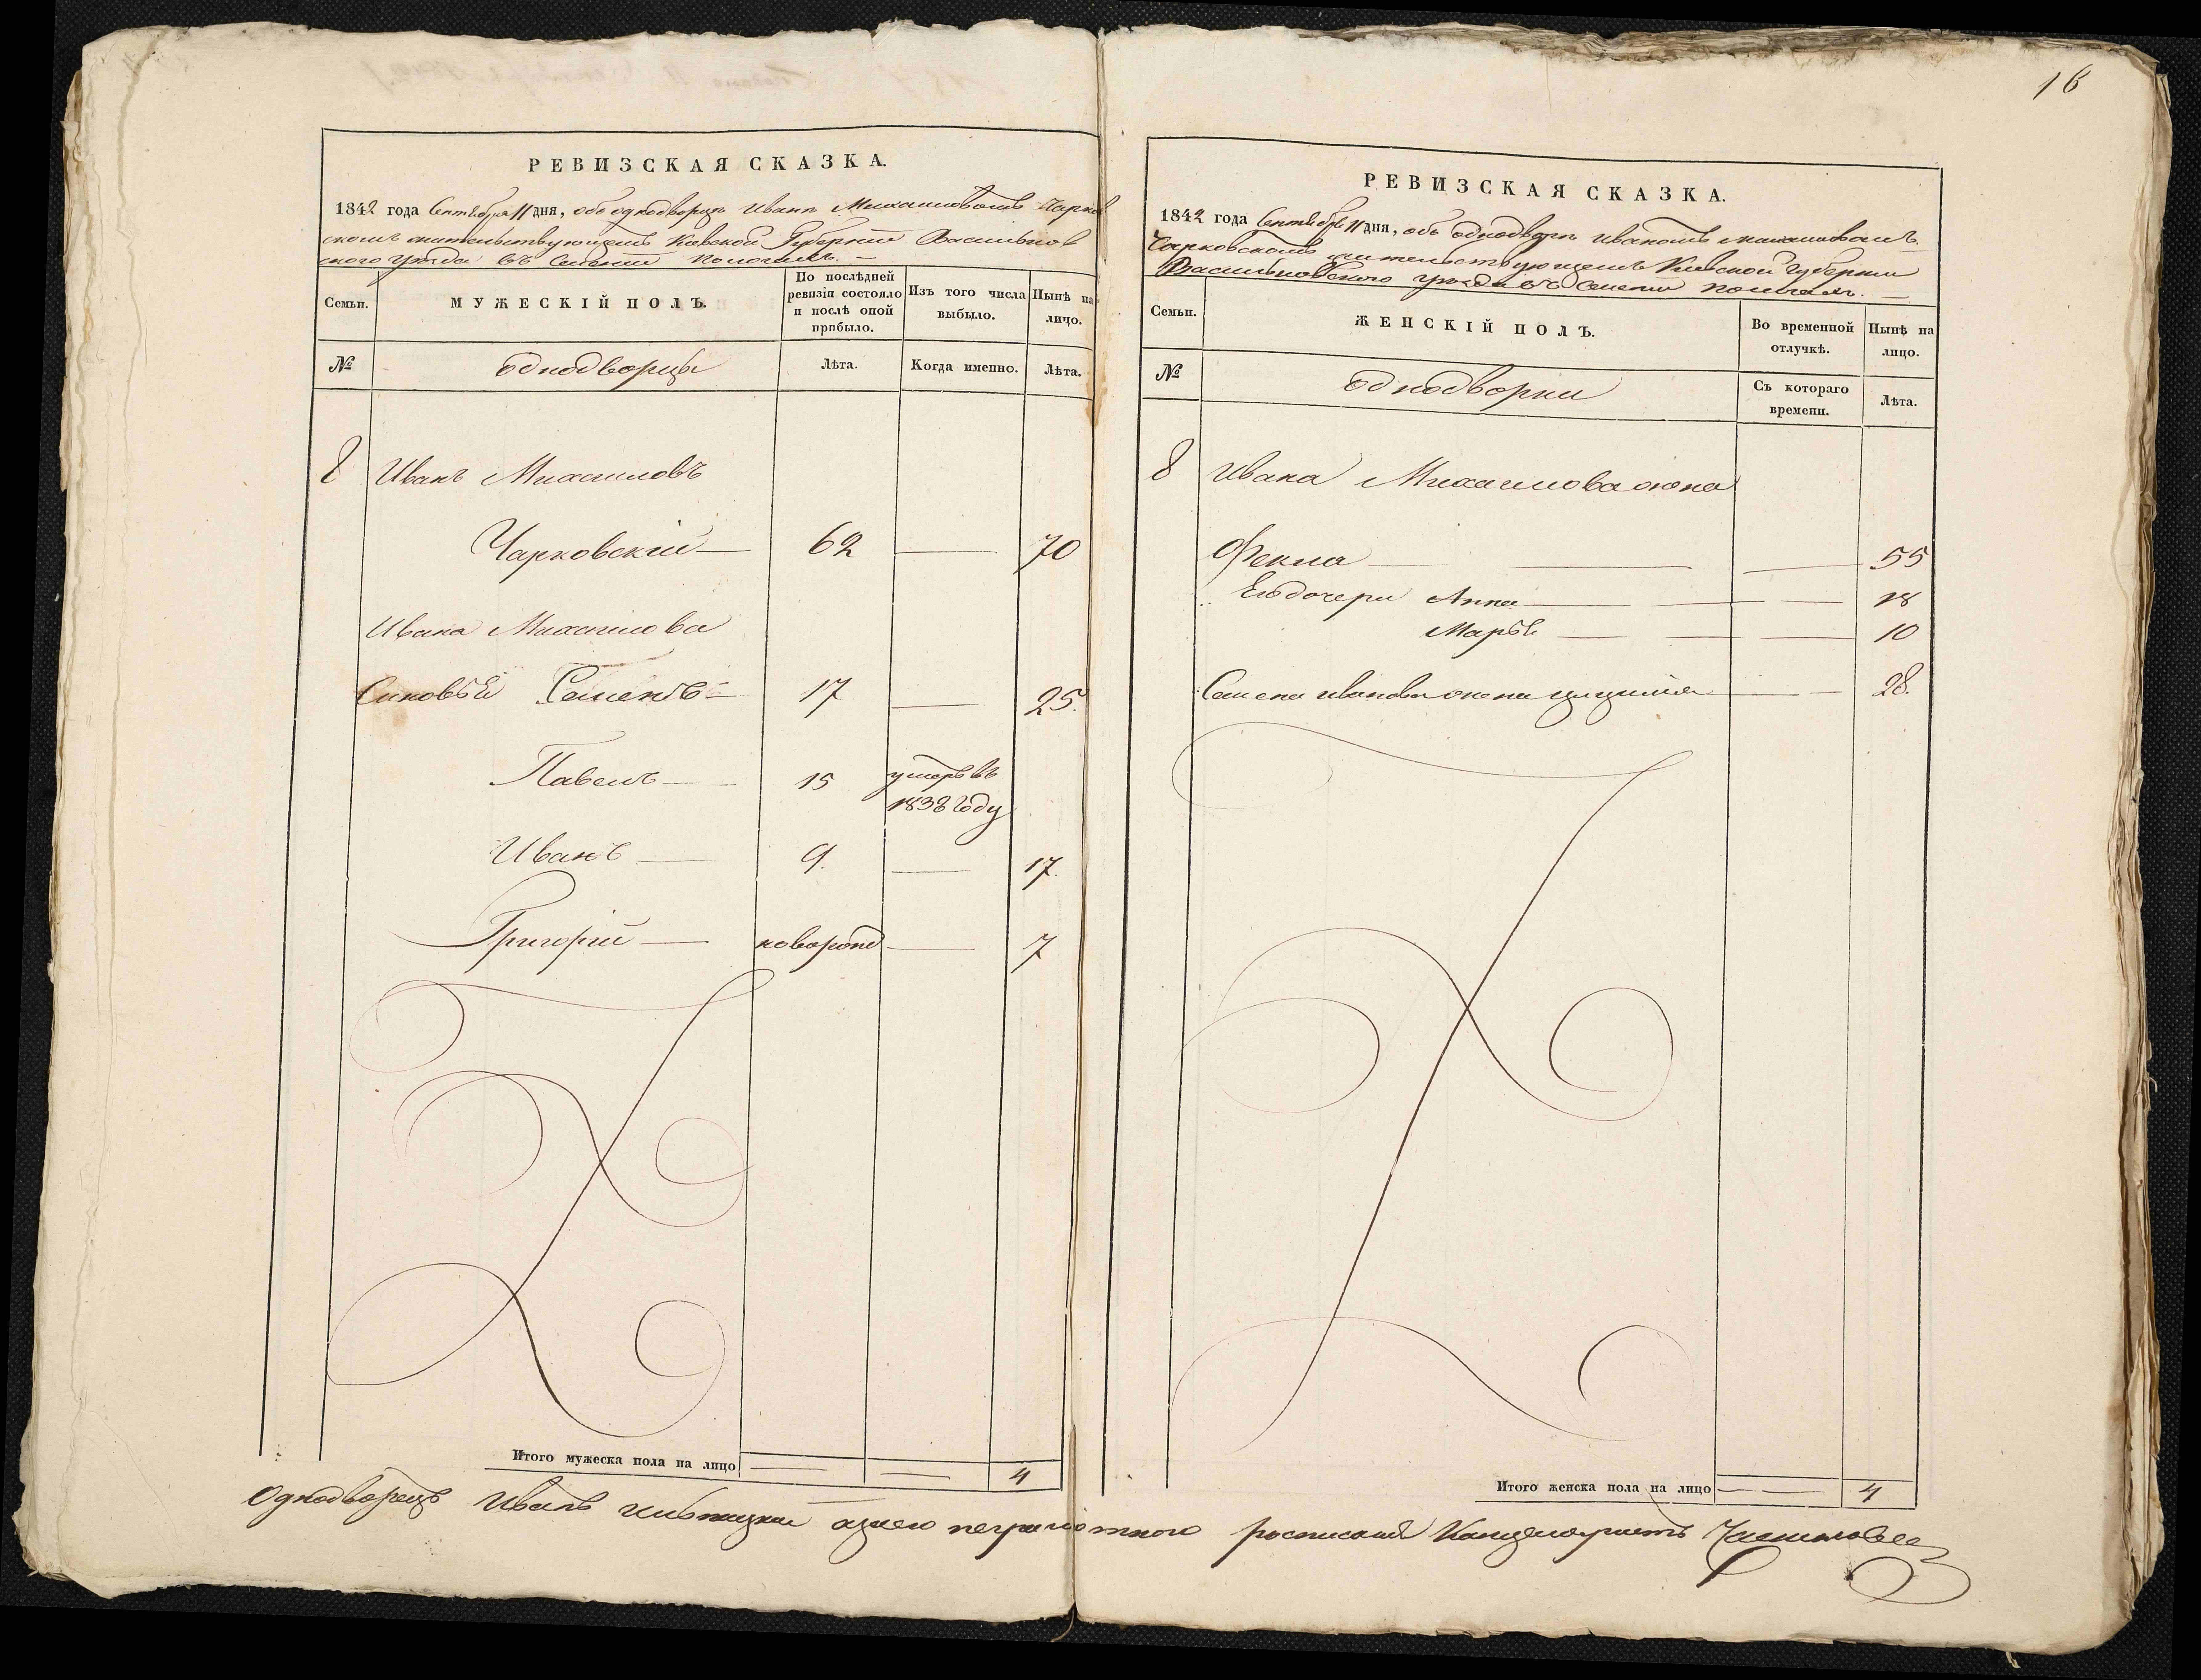 16
РЕВИЗСКАЯ СКАЗКА.
1842 года Сентября 11 дня, объ однодворцѣ Иванѣ Михаиловомъ Чарков
скомъ жительствующемъ Кіевской Губерніи Васильков
ского уѣзда въ Селеніи
Семьи.
МУЖЕСКІЙ ПОЛЪ.
По послѣдней ревизіи состояло и послѣ оной прибыло.
Изъ того числа выбыло.
Нынѣ на лицо.
№
однодворцы
Лѣта.
Когда именно.
Лѣта.
8 Иванъ Михаиловъ
Чарковскій — 62 — 70
Ивана Михаилова
Сыновья Семенъ — 17 — 25.
Павелъ — 15 умеръ въ
1838 году
Иванъ — 9. — 17.
Григорій — новорож — 7
Итого мужеска пола на лицо 4
РЕВИЗСКАЯ СКАЗКА.
1842 года Сентября 11 дня, объ однодворцѣ Иваномъ Михаиловомъ
Чарковскомъ жительствующемъ Кіевской Губерніи
Васильковского уѣзда въ Селеніи
Семьи.
ЖЕНСКІЙ ПОЛЪ.
Во временной отлучкѣ.
Нынѣ на лицо.
№
однодворки
Съ котораго времени.
Лѣта.
8 Ивана Михаилова жена
Фекла — — — 55
Его дочери Анна — — — 18
Марья — — — 10
Семена Иванова жена Цицилія — — 28.
Итого женска пола на лицо 4
Однодворецъ Иванъ а за его неграмотного росписался Канцеляристъ